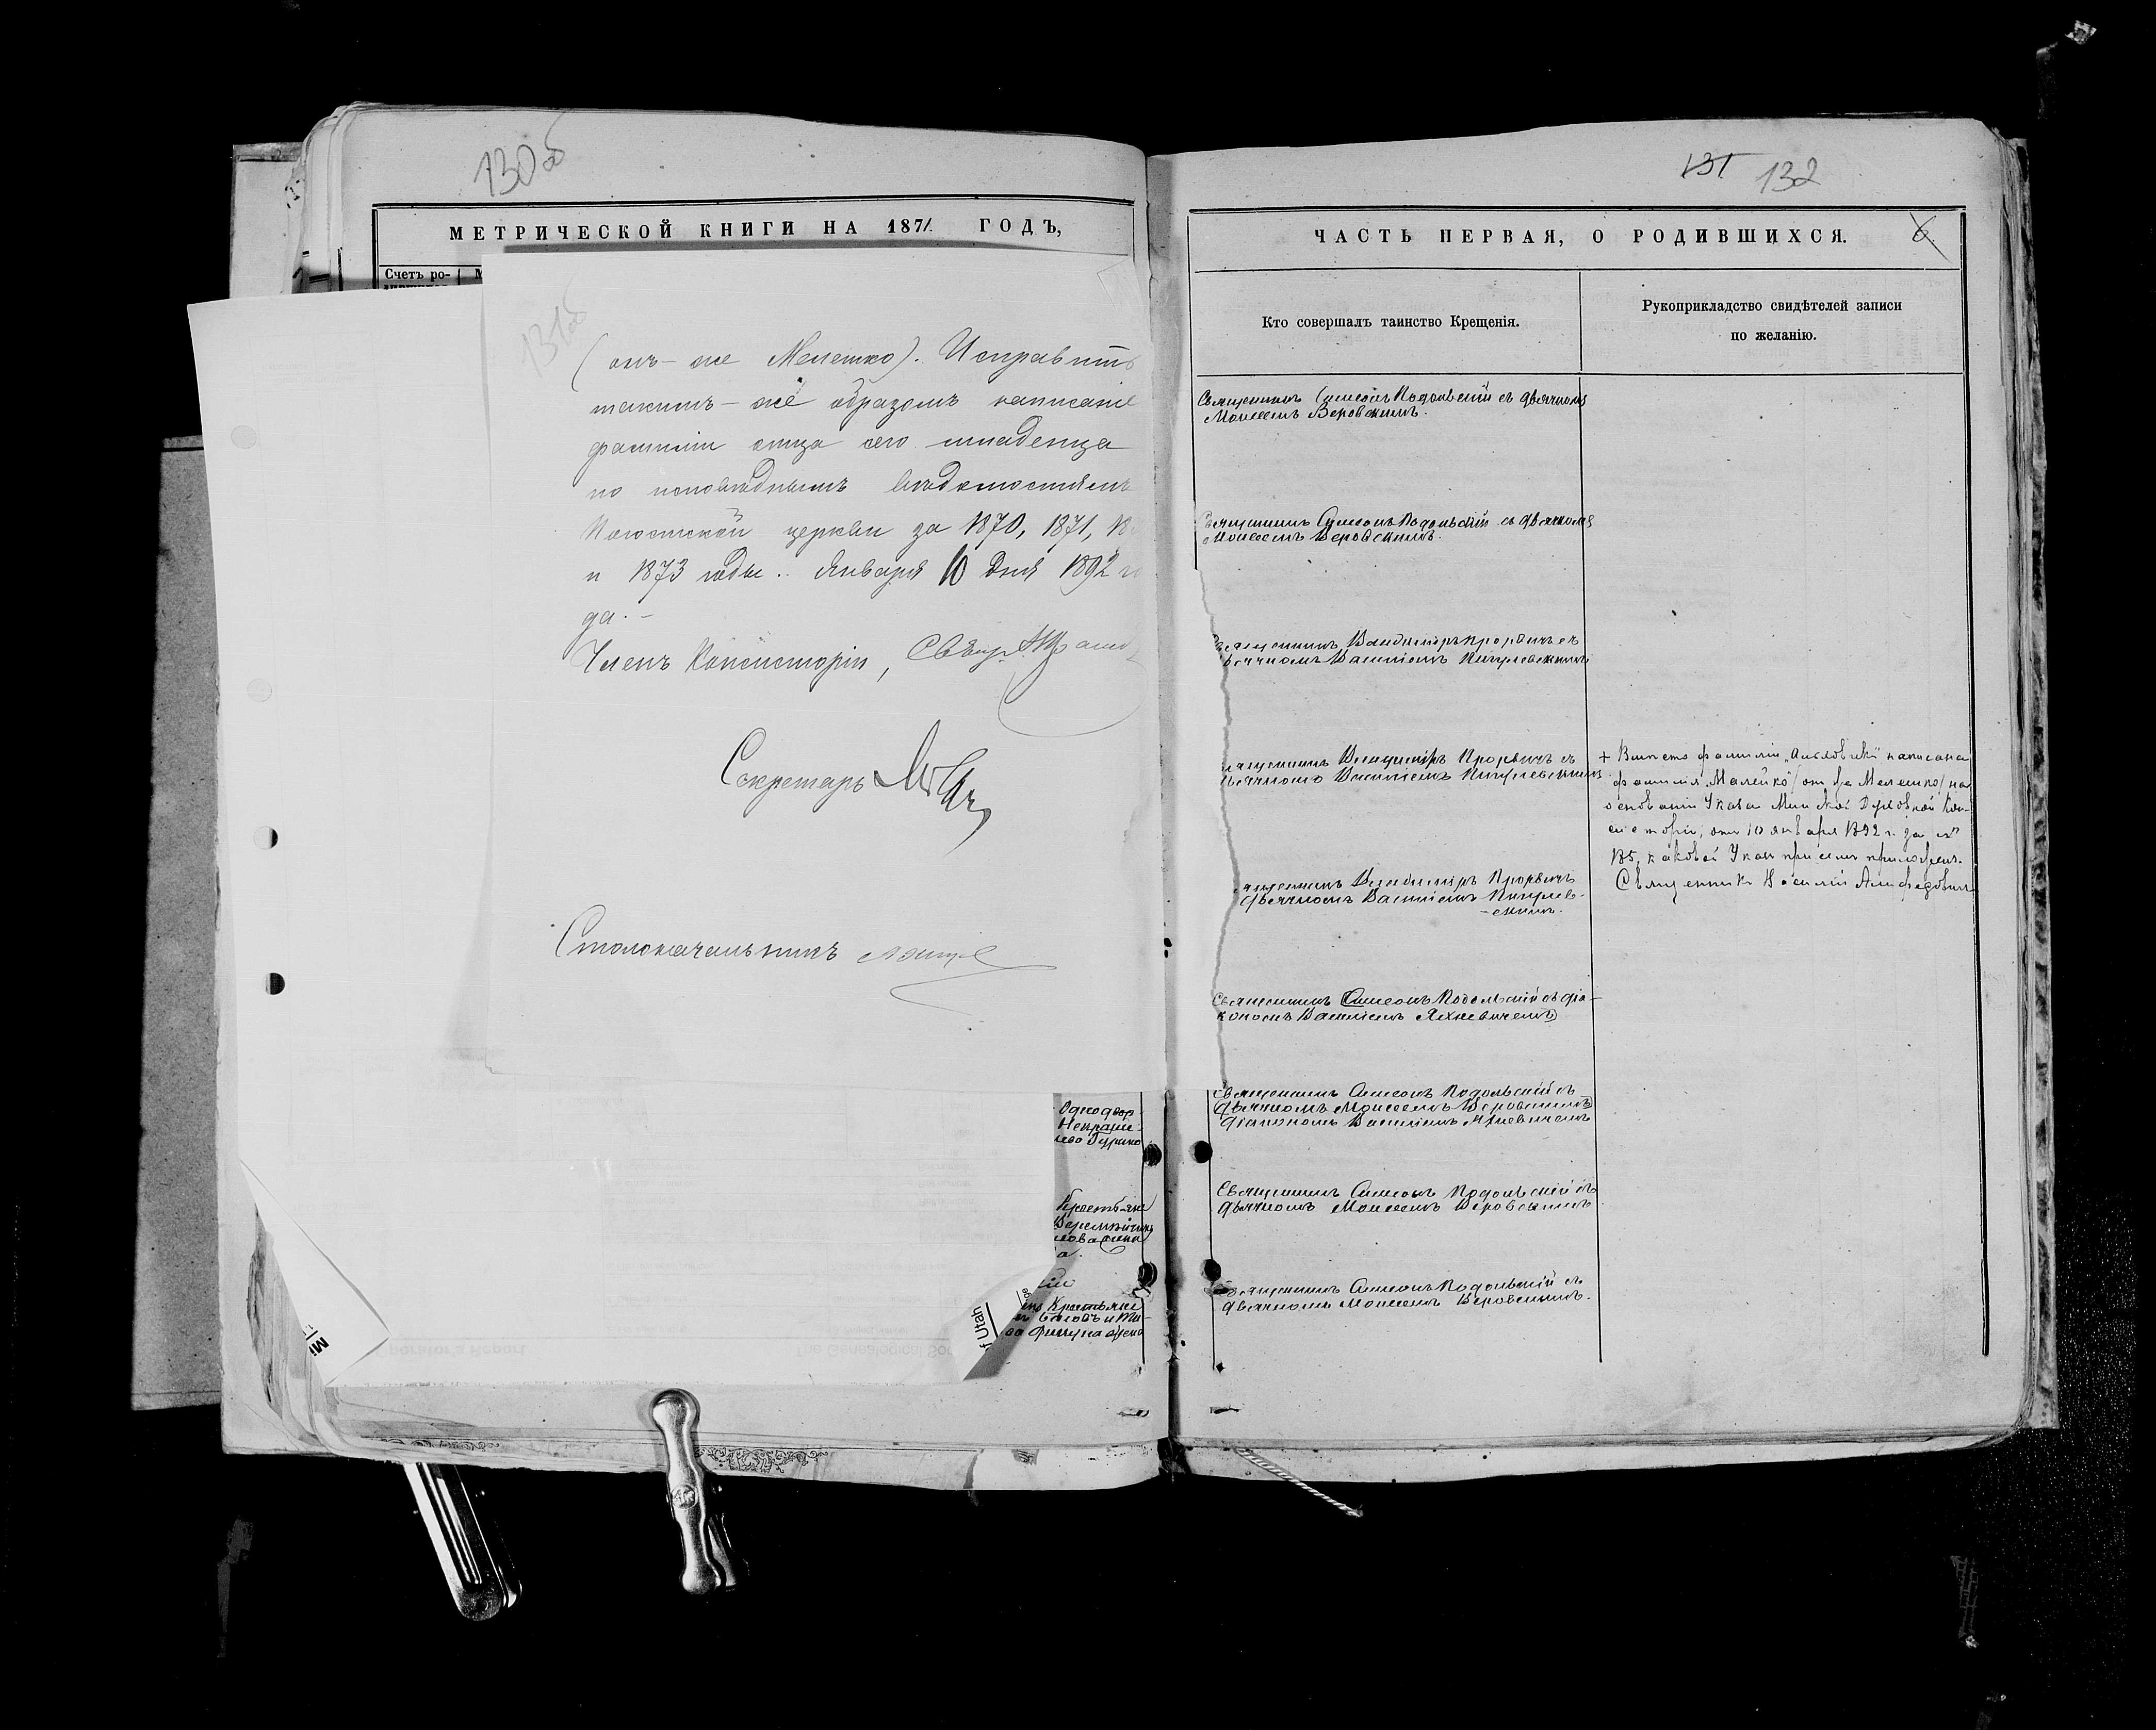 130 об
МЕТРИЧЕСКОЙ КНИГИ НА 1871 ГОДЪ,
Счетъ ро-
131 об
(онъ-же Мелешко). Исправить
такимъ-же образомъ написаніе
фамиліи отца сего младенца
по исповѣднымъ вѣдомостямъ
церкви за 1870, 1871, 18
и 1873 годы.. Января 10 дня 1892 го
да.-
Членъ Консисторіи,
Секретарь
Столоначальникъ
Однодвор
Некраше
Крестьяне
Крестьяне
f Utah
perator's Report
The Genealogical Soc
131 132
ЧАСТЬ ПЕРВАЯ, О РОДИВШИХСЯ.
6.
Кто совершалъ таинство Крещенія.
Рукоприкладство свидѣтелей записи
по желанію.
Священникъ Симеонъ Подольскій съ дьячкомъ
Моисеемъ Веровскимъ.
Священникъ Симеонъ Подольскій съ дьячкомъ
Моисеемъ Веровскимъ.
Священникъ Владиміръ Прорвичъ съ
дьячкомъ Василіемъ
ященникъ Владиміръ Прорвичъ съ
дьячкомъ Василіемъ
+ Вмѣсто фамиліи написана
фамилія „Малейко" (онъ же Мелешко) на
основаніи Указа Минской Духовной Кон-
систоріи, отъ 10 января 1892 г. за №
135, каковой Указъ при семъ приложенъ.
Священникъ Василій
ященникъ Владиміръ Прорвичъ
дьячкомъ Василіемъ
-скимъ.
Священникъ Симеонъ Подольскій съ діа-
кономъ Василіемъ Яхневичемъ
Священникъ Симеонъ Подольскій съ
дьячкомъ Моисеемъ Веровскимъ
діакономъ Василіемъ Яхневичемъ
Священникъ Симеонъ Подольскій съ
дьячкомъ Моисеемъ Веровскимъ
Священникъ Симеонъ Подольскій съ
дьячкомъ Моисеемъ Веровскимъ.